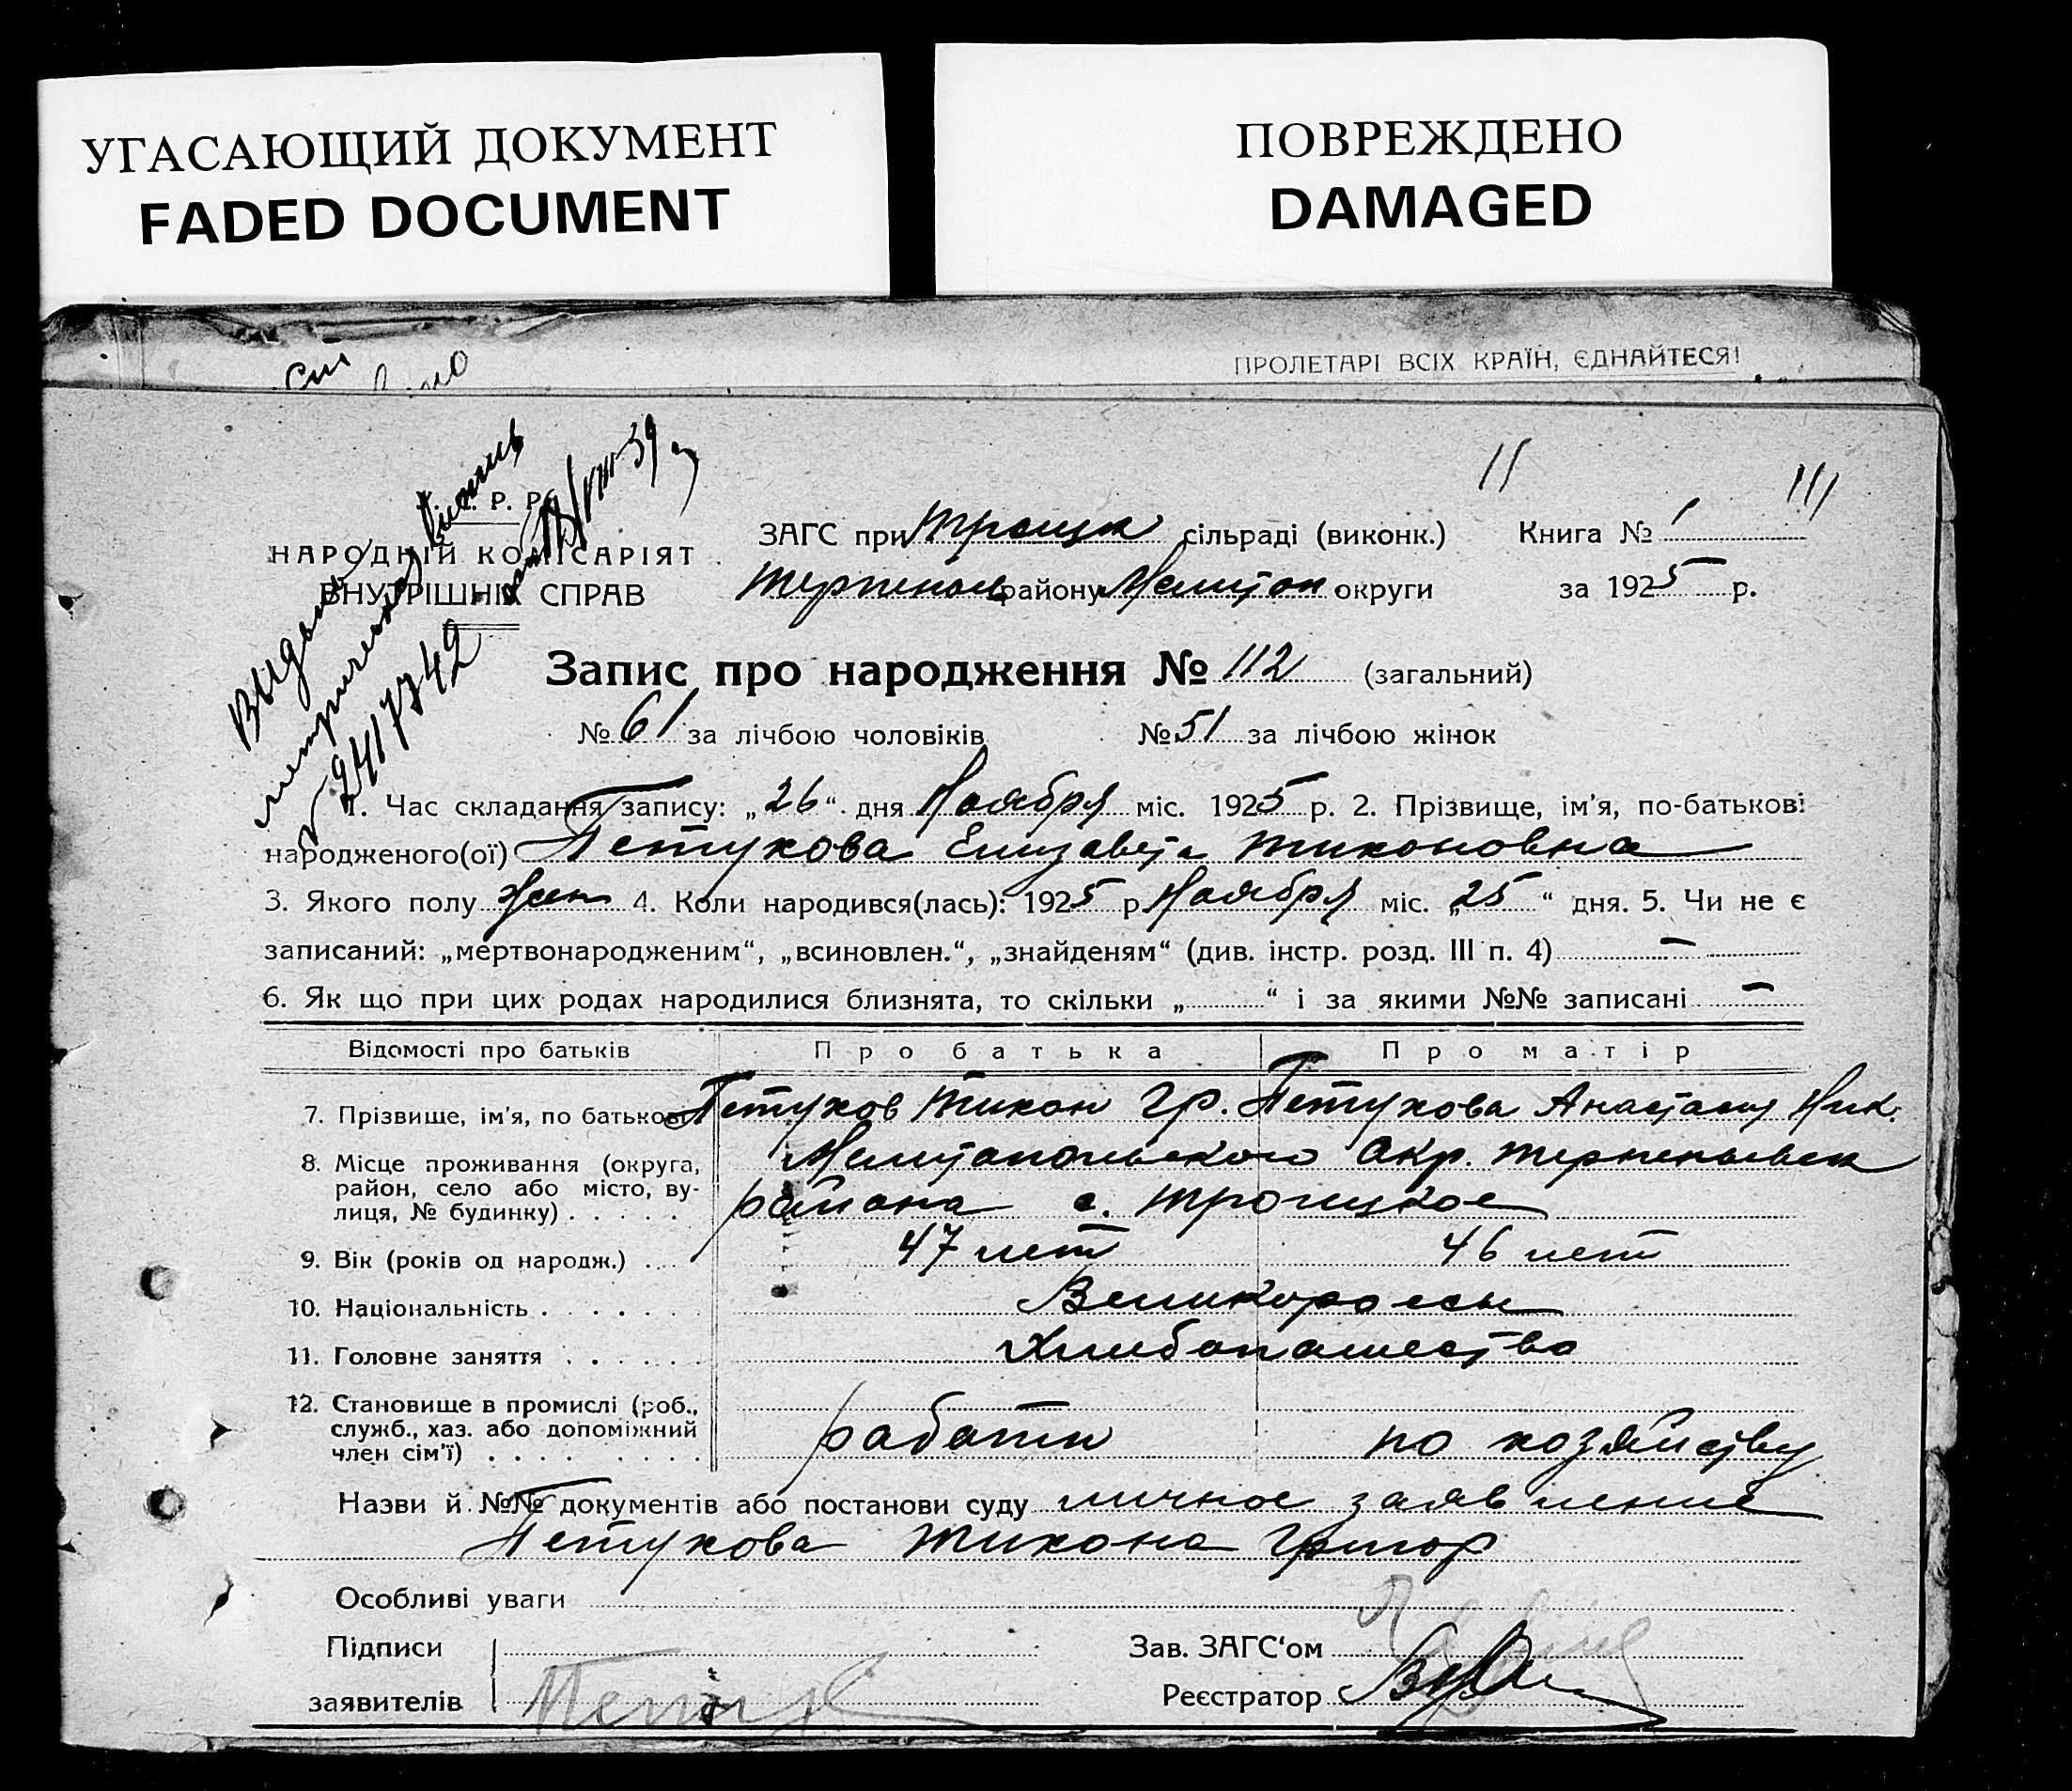 УГАСАЮЩИЙ ДОКУМЕНТ
FADED DOCUMENT
ПОВРЕЖДЕНО
DAMAGED
ПРОЛЕТАРІ ВСІХ КРАЇН, ЄДНАЙТЕСЯ!
Р. Р.
НАРОДНІЙ КОМІСАРІЯТ
ВНУТРІШНІХ СПРАВ
метрическая
2417742
ЗАГС при Троицк сільраді (виконк.) Книга № 1
Терпеньев району Мелитоп округи за 1925 р.
Запис про народження № 112 (загальний)
№ 61 за лічбою чоловіків № 51 за лічбою жінок
1. Час складання запису: „26“ дня Ноября міс. 1925 р. 2. Прізвище, ім'я, по-батькові
народженого(ої) Петухова Елизавета Тихоновна
3. Якого полу жен 4. Коли народився(лась): 1925 р Ноября міс. „25“ дня. 5. Чи не є
записаний: „мертвонародженим“, „всиновлен.“, „знайденям“ (див. інстр. розд. III п. 4) —
6. Як що при цих родах народилися близнята, то скільки „ “ і за якими №№ записані —
Відомості про батьків Про батька Про матір
7. Прізвище, ім'я, по батькові Петухов Тихон Гр. Петухова Анастасия Ник.
8. Місце проживання (округа, Мелитопольского Окр. Терпеньевск
район, село або місто, ву- района с. Троицкое
лиця, № будинку) . . . . .
9. Вік (років од народж.) . . . 47 лет 46 лет
10. Національність . . . . . . Великороссы
11. Головне заняття . . . . . . Хлебопашество
12. Становище в промислі (роб.,
служб., хаз. або допоміжний работн по хозяйству
член сім'ї) . . . . . . . .
Назви й №№ документів або постанови суду личное заявление
Петухова Тихона Григор
Особливі уваги
Підписи Зав. ЗАГС‘ом
заявителів Петух Реєстратор